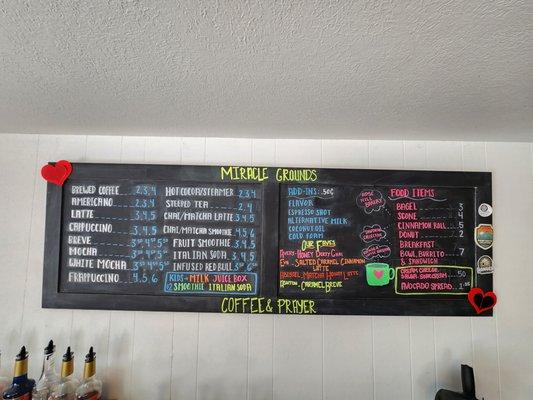 MIRACLE GROUNDS
BREWED COFFEE 2,3,4
AMERICANO 2,3,4
LATTE 3,4,5
CAPPUCCINO 3,4,5
BREVE
MOCHA
WHITE MOCHA
FRAPPUCCINO 4,5,6
HOT COCOA/STEAMER 2,3,4
STEEPED TEA 2,4
CHAI/MATCHA LATTE 3,4,5
CHAI/MATCHA SMOOTHIE 4,5,6
FRUIT SMOOTHIE 3,4,5
INFUSED RED BULL
ITALIAN SODA
KIDS- MILK JUICE BOX
SMOOTHIE ITALIAN SODA
ADD-INS: 50¢
FLAVOR
ESPRESSO SHOT
ALTERNATIVE MILK
COCONUT OIL
COLD FOAM
OUR FAVES
HONEY DIRTY CHAI
SALTED CARAMEL CINNAMON
LATTE
MATCHA HONEY LATTE
CARAMEL BREVE
ROSE HILL
BAKERY
FOOD ITEMS
BAGEL 3
SCONE 4
CINNAMON ROLL 5
DONUT 2
BREAKFAST
BOWL, BURRITO 7
& SANDWICH
CREAM CHEESE 50
AVOCADO SPREAD
COFFEE & PRAYER